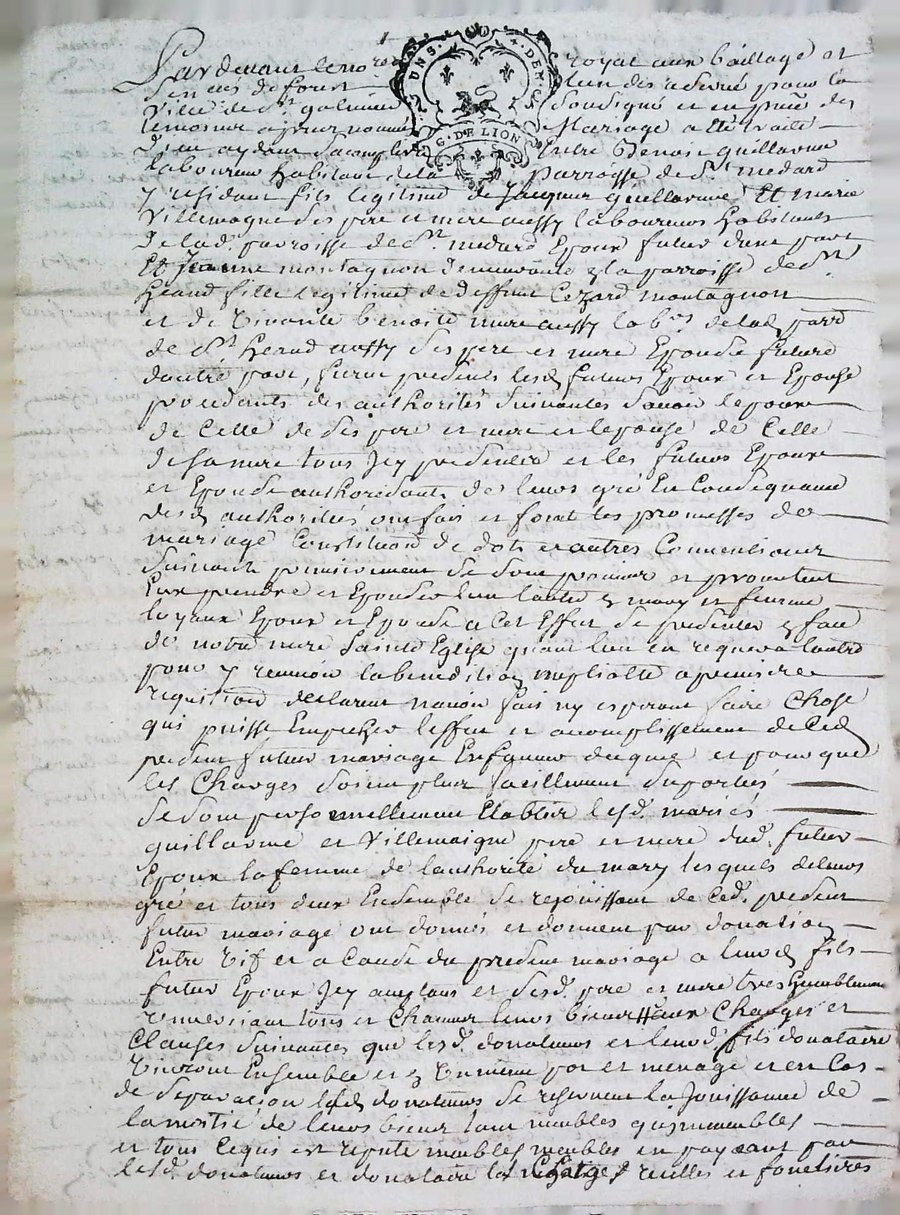 UN S. 4. DEN.
G. DE LION
Pardevant le no.re royal aux bailliage et
Senéés de forest
Ville de S.t galmier soubsigné et en pñce des
temoins apres nommés Mariage a été traité
Dieu aydant sacomplira Entre Benoit guillarme
laboureur habitant de la Parroisse de S.t medard
y residant fils legitime de Jacques guillarme Et marie
Villemagne ses pere et mere aussy laboureurs habitants
de lad. parroisse de S.t medard Epoux futur dune part
Et Jeanne montagnon demeurante en la parroisse de S.t
heand fille legitime de deffunt Cezard montagnon
et de vivante benoite mure aussy lab.rs de lad. parr.
de S.t heand aussy ses pere et mere Epouse future
dautre part, furent presents lesd. futurs Epoux et Epouse
procedants des authorités suivantes savoir lepoux
de Celle de ses pere et mere et lepouse de Celle
de sa mere tous Icy presents et les futurs Epoux
et Epouse authorisants de leurs gré En Consequance
desd. authorités ont fais et font les promesses de
mariage Constitution de dots et autres Conventions
suivants premierement se sont promis et promettent
Eux prendre et Epouser lun lautre en mary et femme
loyaux Epoux et Epouse a Cet Effet se presenter en face
de notre mere Sainte Eglise quant lun en requera lautre
pour y recevoir la benediction nuptialle a premiere
requisition declarent navoir fais ny esperant faire Chose
qui puisse Empecher leffet et acomplissement de Ced.
present futur mariage En faveur duquel et pour que
les Charges soient plus facillement suportés
se sont personnellement Etablis lesd. mariés
guillarme et Villemaigne pere et mere dud. futur
Epoux la femme de lauthorité du mary lesquels de leurs
gré et tous deux Ensemble se rejouissant de Ced. present
futur mariage ont donnés et donnent par donation
Entre vif et a Cause du present mariage a leurd. fils
futur Epoux Icy acceptant et sesd. pere et mere tres humblement
remerciant tous et Chacun leurs biens aux Charges et
Clauses suivantes que lesd. donateurs et leurd. fils donataire
vivront Ensemble et en un meme pot et menage et en Cas
de separation lesd. donateurs se reservent la Jouissance de
la moitié de leurs biens tant meubles quimmeubles
et tous Cequi est reputé meubles meubles en payeant par
lesd. donateurs et donataire les Charges reelles et foncieres